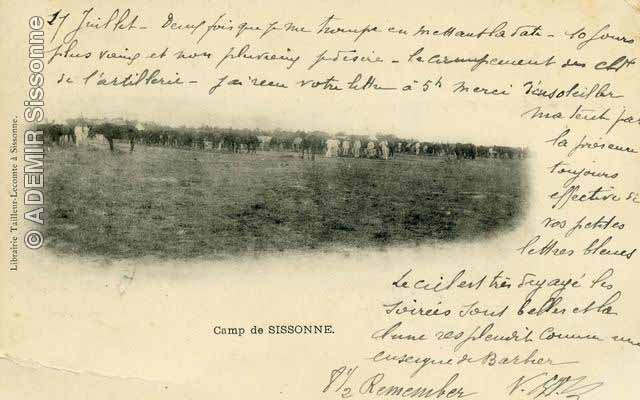 17 Juillet - Deux fois que je me trompe en mettant la date - 10 jours
plus vains et non pluvieux je désire - le campement des chx
de l'artillerie - j'ai reçu votre lettre à 5h merci d'ensoleiller
ma tente par
la présence
toujours
effective de
vos petites
lettres bleues
Le ciel est très dégagé les
soirées sont belles et la
lune resplendit comme une
enseigne de Barbier
8 1/2 Remember
Camp de SISSONNE.
Librairie Tailleur-Lecomte à Sissonne.
© ADEMIR Sissonne